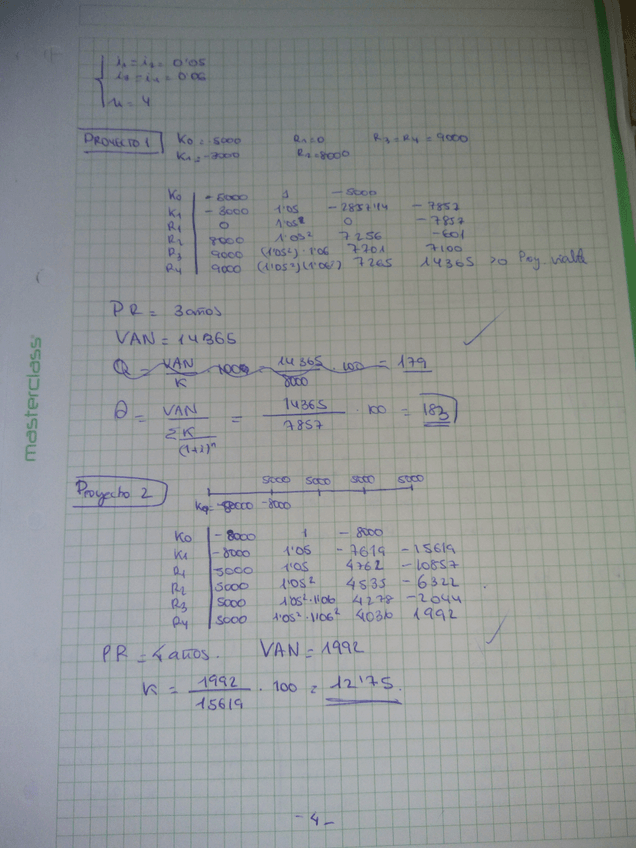 i₁ = i₂ = 0'05
i₃ = i₄ = 0'06
n = 4
PROYECTO 1 K₀ = -5000 R₁ = 0 R₃ = R₄ = 9000
K₁ = -3000 R₂ = 8000
K₀ -5000 1 -5000
K₁ -3000 1'05 -2857'14 -7857
R₁ 0 1'05² 0 -7857
R₂ 8000 1'05² 7256 -601
R₃ 9000 (1'05²)·1'06 7701 7100
R₄ 9000 (1'05²)(1'06²) 7265 14365 >0 Proy. viable
PR = 3 años
VAN = 14365
Q = VAN/K · 100 = 14365/8000 · 100 = 179
Q = VAN / Σ K/(1+i)ⁿ = 14365/7857 · 100 = 183
Proyecto 2 5000 5000 5000 5000
K₀ = -8000 -8000
K₀ -8000 1 -8000
K₁ -8000 1'05 -7619 -15619
R₁ 5000 1'05 4762 -10857
R₂ 5000 1'05² 4535 -6322
R₃ 5000 1'05²·1'06 4278 -2044
R₄ 5000 1'05²·1'06² 4036 1992
PR = 4 años. VAN = 1992
K = 1992/15619 · 100 = 12'75.
-4-
masterclass